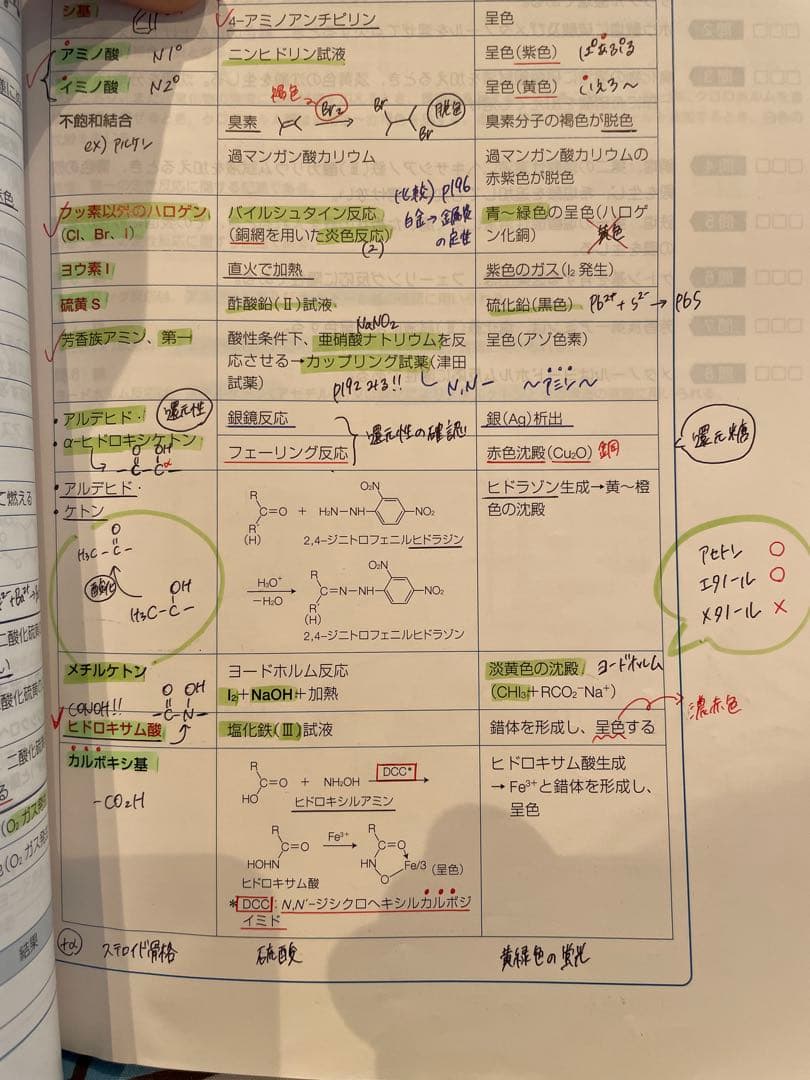 シ基
4-アミノアンチピリン
呈色
アミノ酸 N1°
ニンヒドリン試液
呈色(紫色)
イミノ酸 N2°
呈色(黄色)
不飽和結合
ex) アルケン
褐色 Br₂ 脱色
臭素
Br
Br
臭素分子の褐色が脱色
過マンガン酸カリウム
過マンガン酸カリウムの
赤紫色が脱色
(比較) p196
白金→金属炎
の定性
フッ素以外のハロゲン
(Cl、Br、I)
バイルシュタイン反応
(銅網を用いた炎色反応)
(2)
青〜緑色の呈色(ハロゲ
ン化銅)
黄色
ヨウ素 I
直火で加熱
紫色のガス(I₂ 発生)
硫黄 S
酢酸鉛(Ⅱ)試液
硫化鉛(黒色)
Pb²⁺ + S²⁻ → PbS
NaNO₂
芳香族アミン、第一
酸性条件下、亜硝酸ナトリウムを反
応させる→カップリング試薬(津田
試薬)
p192みる!! N,N-
呈色(アゾ色素)
〜アミン〜
・アルデヒド・
還元性
・α-ヒドロキシケトン
O OH
-C-Cα
銀鏡反応
フェーリング反応
還元性の確認!
銀(Ag)析出
赤色沈殿(Cu₂O) 銅
還元糖
・アルデヒド・
・ケトン
O
H₃C-C-
酸化
OH
H₃C-C-
R
C=O + H₂N-NH
(H)
O₂N
NO₂
2,4-ジニトロフェニルヒドラジン
H₃O⁺
−H₂O
R
C=N-NH
(H)
O₂N
NO₂
2,4-ジニトロフェニルヒドラゾン
ヒドラゾン生成→黄〜橙
色の沈殿
アセトン ○
エタノール ○
メタノール ×
メチルケトン
ヨードホルム反応
I₂+NaOH+加熱
淡黄色の沈殿 ヨードホルム
(CHI₃+RCO₂⁻Na⁺)
CONOH!!
O OH
-C-N-
ヒドロキサム酸
塩化鉄(Ⅲ)試液
錯体を形成し、呈色する
濃赤色
カルボキシ基
-CO₂H
R
C=O + NH₂OH
HO
DCC*
ヒドロキシルアミン
R
C=O
HOHN
ヒドロキサム酸
Fe³⁺
R
C=O
HN
O
Fe/3 (呈色)
*DCC:N,N′-ジシクロヘキシルカルボジ
イミド
ヒドロキサム酸生成
→ Fe³⁺と錯体を形成し、
呈色
+α ステロイド骨格
硫酸
黄緑色の蛍光
て燃える
(O₂ ガス発
(O₂ ガス発
結果